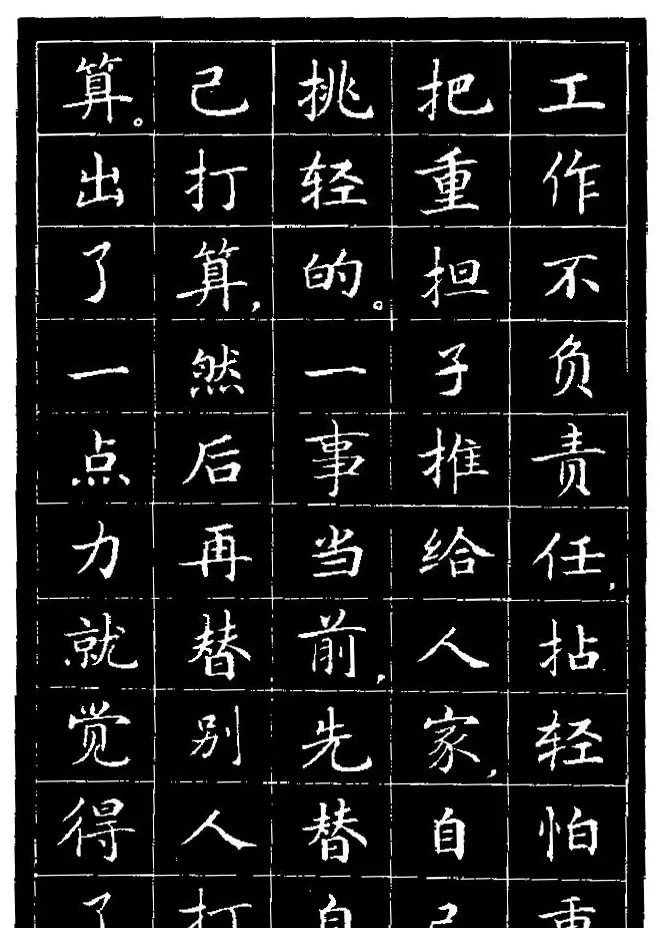 工作不负责任,拈轻怕重
把重担子推给人家,自己
挑轻的。一事当前,先替自
己打算,然后再替别人打
算。出了一点力就觉得了